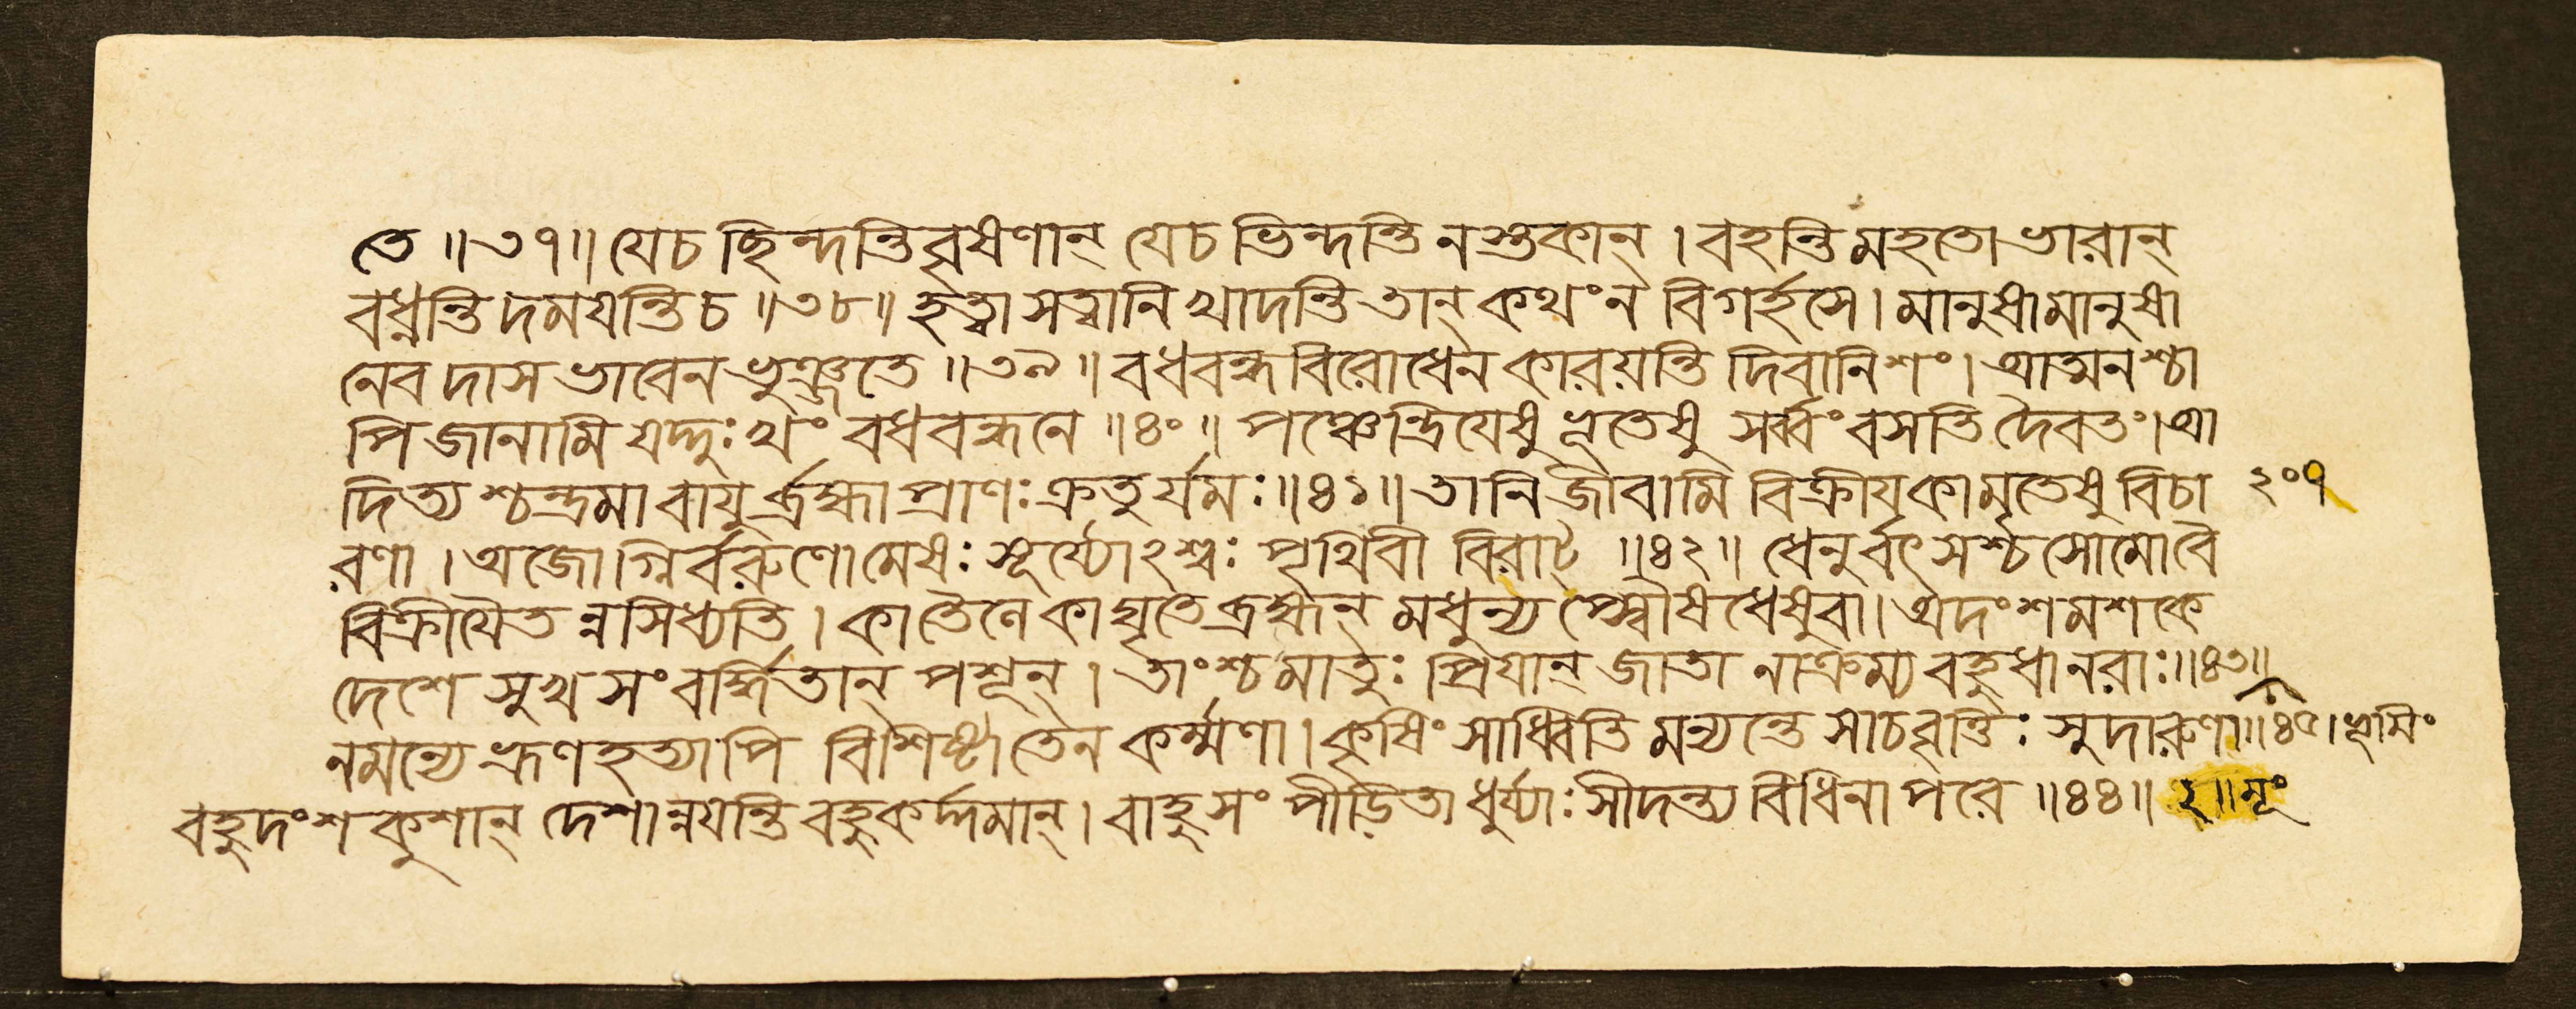 তে ॥৩৭॥ যেচ ছিন্দন্তি বৃষণান্ যেচ ভিন্দন্তি নস্তকান্ । বহন্তি মহতো ভারান্
বধ্নন্তি দময়ন্তি চ ॥৩৮॥ হত্বা সত্বানি খাদন্তি তান্ কথং ন বিগর্হসে। মানুষা মানুষা
নেব দাস ভাবেন ভুঞ্জতে ॥৩৯॥ বধবন্ধ বিরোধেন কারয়ন্তি দিবানিশং। আত্মনশ্চা
পি জানামি যদ্দুঃখং বধবন্ধনে ॥৪০॥ পঞ্চেন্দ্রিযেষু ভূতেষু সর্ব্বং বসতি দৈবতং। আ
দিত্য শ্চন্দ্রমা বাযুর্ব্রহ্মা প্রাণঃ ক্রতুর্যমঃ ॥৪১॥ তানি জীবামি বিক্রীয কা মৃতেষু বিচা ২০৭
রণা । অজোগ্নির্বরুণো মেষঃ সূর্য্যোঽশ্বঃ পৃথিবী বিরাট্ ॥৪২॥ ধেনুর্বৎসশ্চ সোমো বৈ
বিক্রীযৈতন্ন সিধ্যতি। কা তৈলে কা ঘৃতে ব্রহ্মন্ মধুন্য প্স্বৌষধেষু বা। অদংশ মশকে
দেশে সুখ সংবর্দ্ধিতান্ পশূন্ । তাংশ্চ মাতুঃ প্রিযান্ জাতা নাক্রম্য বহুধা নরাঃ ॥৪৩॥
ন মন্যে ভ্রূণহত্যাপি বিশিষ্টা তেন কর্ম্মণা। কৃষিং সাধ্বিতি মন্যন্তে সাচ বৃত্তিঃ সুদারুণা ॥৪৫। ভূমিং
বহুদংশ কুশান্ দেশান্নযন্তি বহুকর্দ্দমান্। বাহু সংপীড়িতা ধুর্য্যাঃ সীদন্ত্য বিধিনা পরে ॥৪৪॥